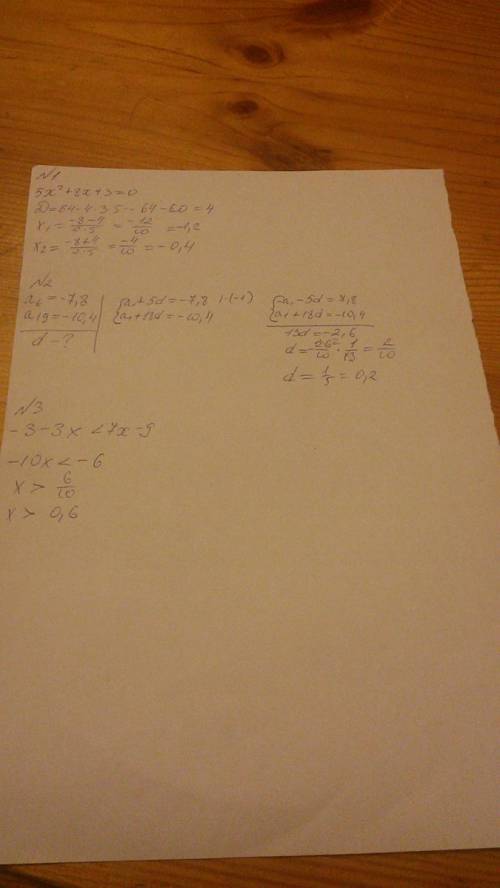 №1
5x²+8x+3=0
D=64-4·3·5=64-60=4
x₁=\frac{-8-4}{2·5}=\frac{-12}{10}=-1,2
x₂=\frac{-8+4}{2·5}=\frac{-4}{10}=-0,4
№2
a₆=-7,8
a₁₉=-10,4
d-?
{a₁+5d=-7,8 |·(-1)
{a₁+18d=-10,4
{a₁-5d=7,8
{a₁+18d=-10,4
13d=-2,6
d=-\frac{26}{10}·\frac{1}{13}=\frac{2}{10}
d=\frac{1}{5}=0,2
№3
-3-3x<7x-9
-10x<-6
x>\frac{6}{10}
x>0,6